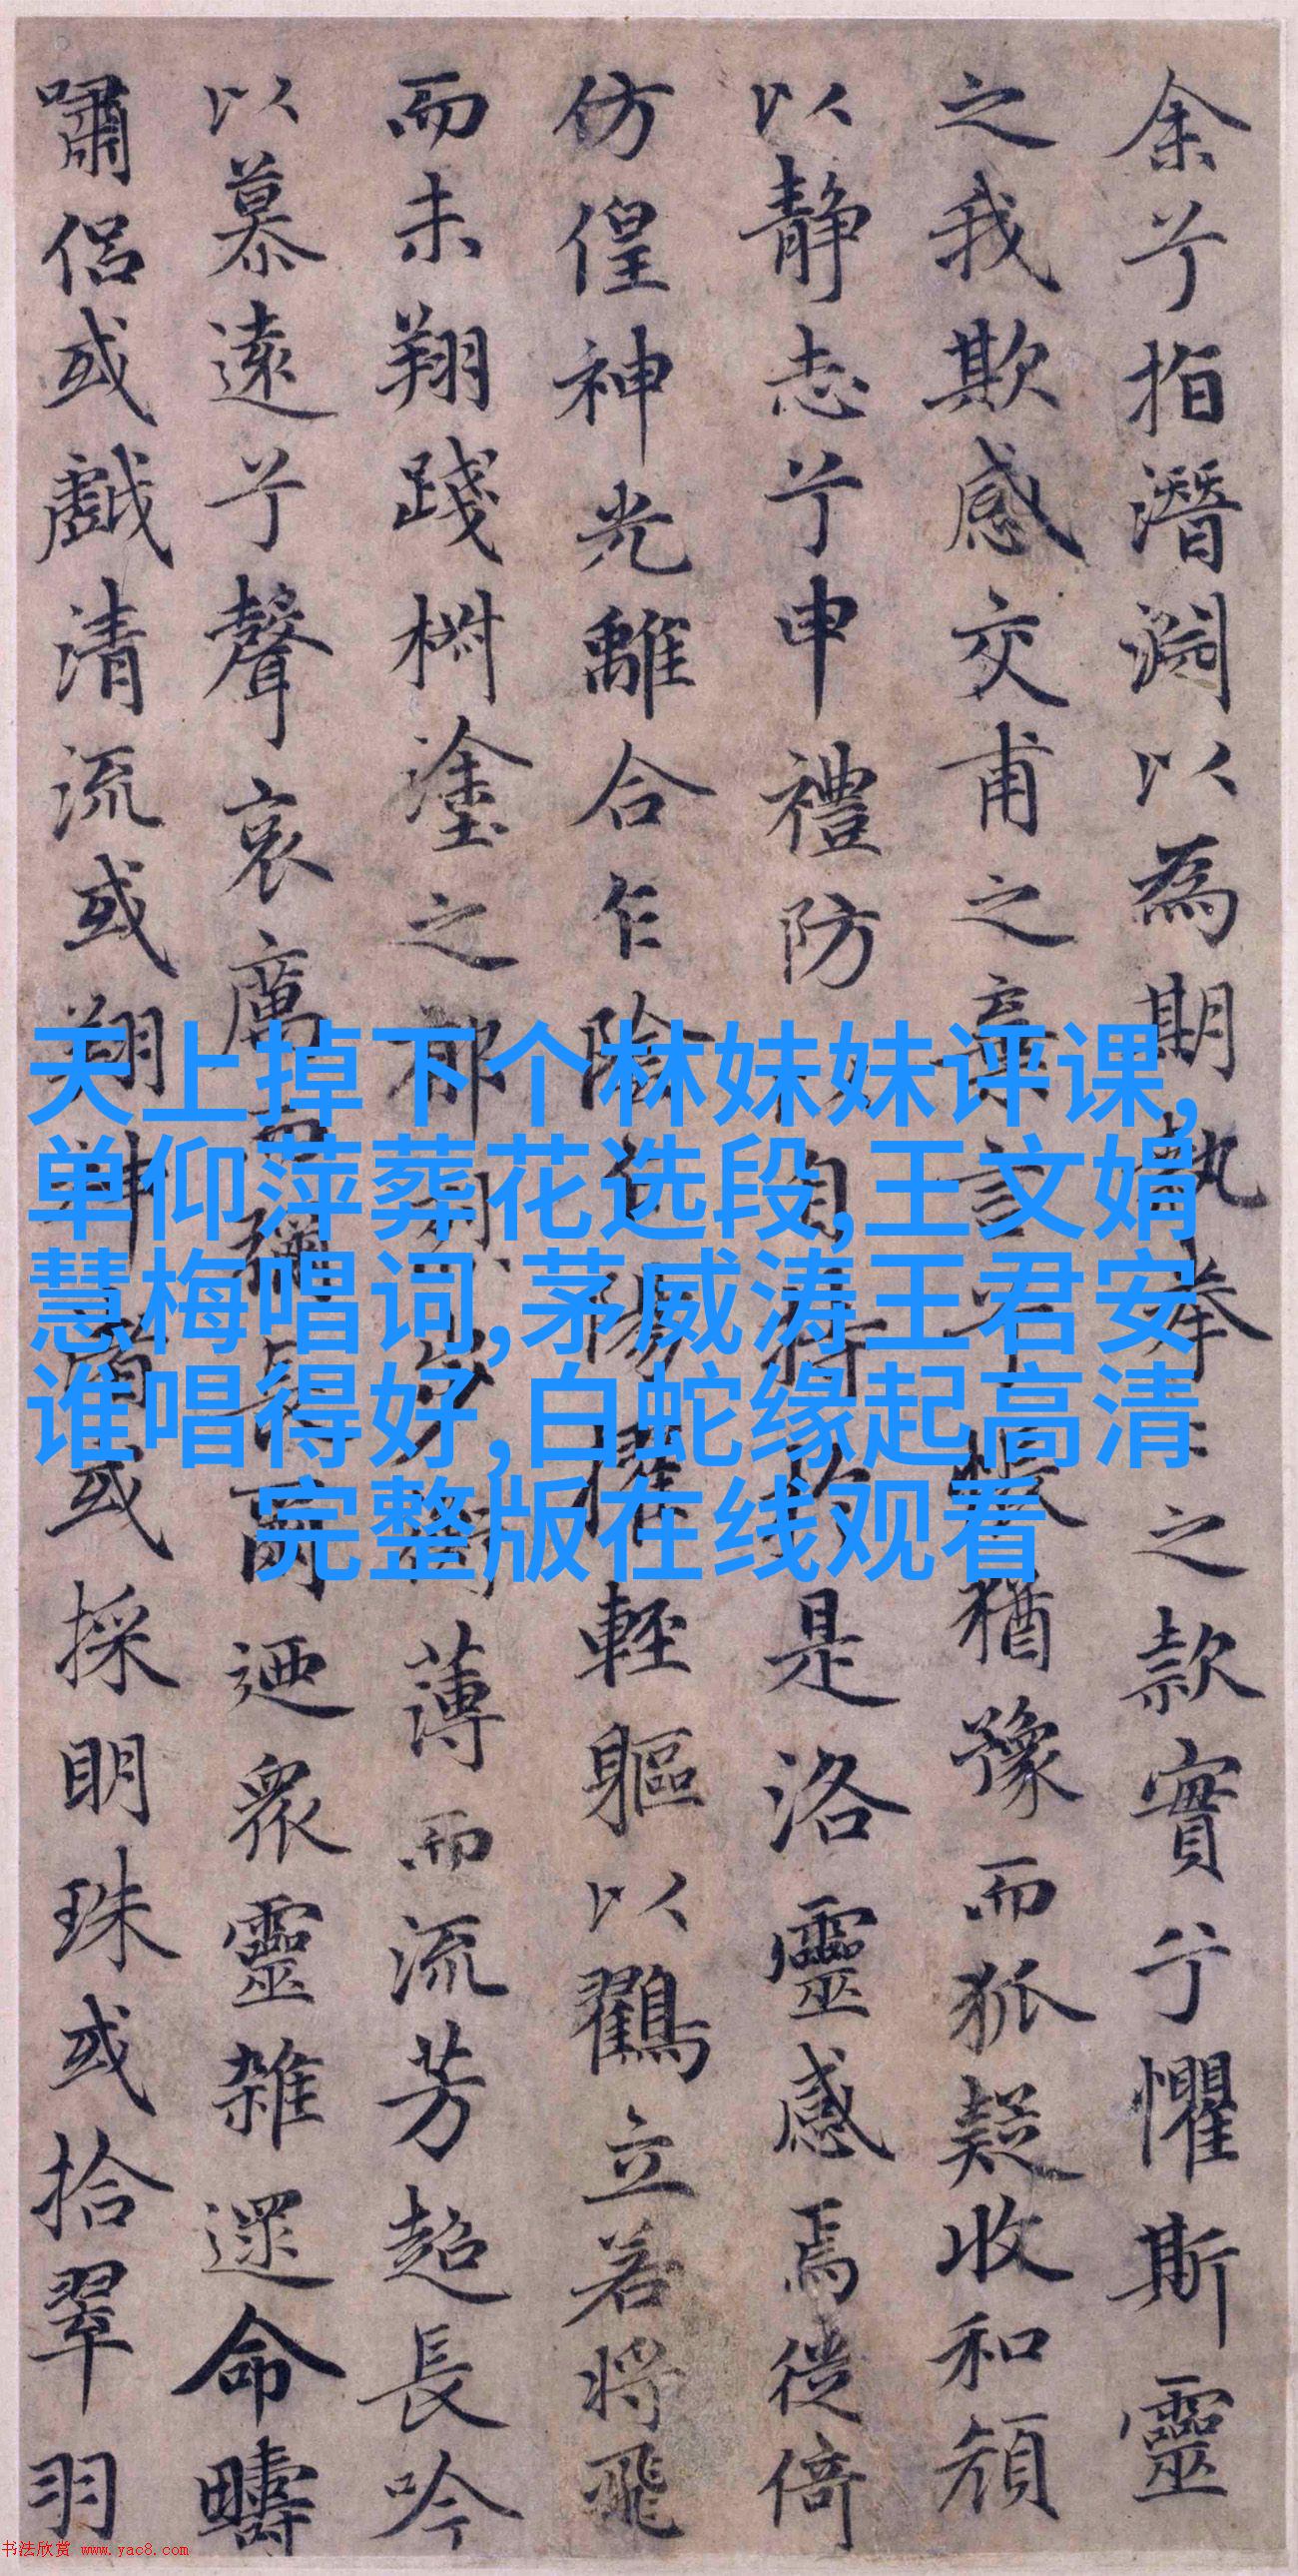 余兮指潛淵以為期執拳〻之款實兮懼斯靈
之我欺感交甫之棄言兮悵猶豫而狐疑收和顏
以靜志兮申禮防以自持於是洛靈感焉徙倚
仿偟神光離合乍陰乍陽擢輕軀以鶴立若將飛
而未翔踐椒塗之郁烈步蘅薄而流芳超長吟
以慕遠兮聲哀厲而彌長爾迺眾靈雜遝命疇
嘯侶或戲清流或翔神渚或採明珠或拾翠羽
天上掉下个林妹妹评课,
单仰萍葬花选段,王文娟
慧梅唱词,茅威涛王君安
谁唱得好,白蛇缘起高清
完整版在线观看
书法欣赏 www.yac8.com